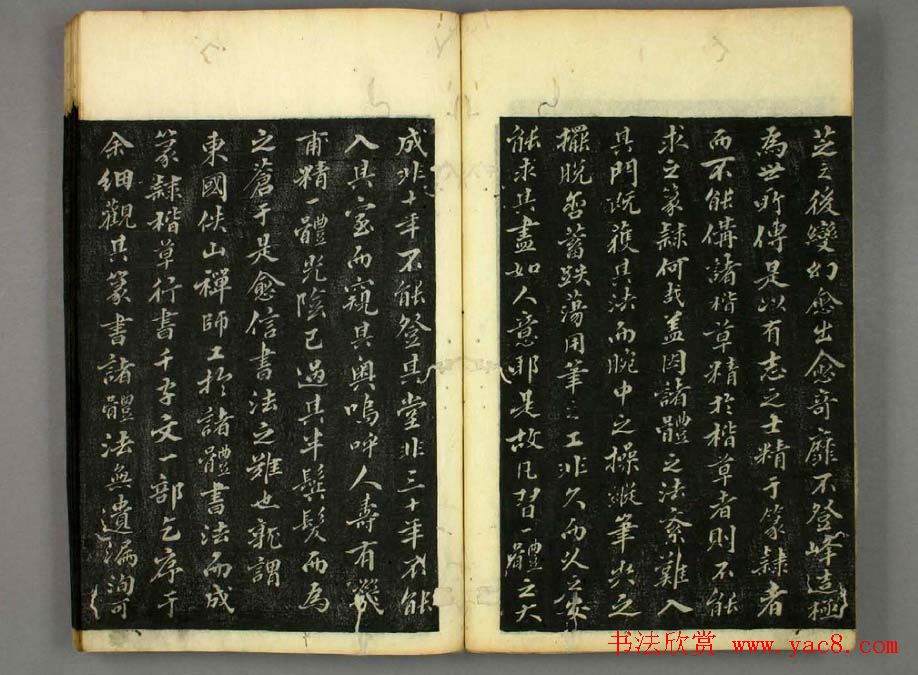 芝之後變幻愈出愈奇靡不登峰造極
為世所傳是以有志之士精于篆隸者
而不能備諸楷草精於楷草者則不能
求之篆隸何哉蓋因諸體之法奈難入
其門既獲其法而腕中之操縱筆鋒之
擺脫含蓄跌蕩用筆之工非久而从容
能求其盡如人意耶是故凡習一體之大
成非十年不能登其堂非三十年不能
入其室而窺其奧嗚呼人壽有幾
甫精一體光陰已過其半鬢髮而為
之蒼于是愈信書法之難也孰謂
東國伏山禪師工於諸體書法而成
篆隸楷草行書千字文一部乞序于
余細觀其篆書諸體法無遺漏洵可
书法欣赏 www.yac8.com